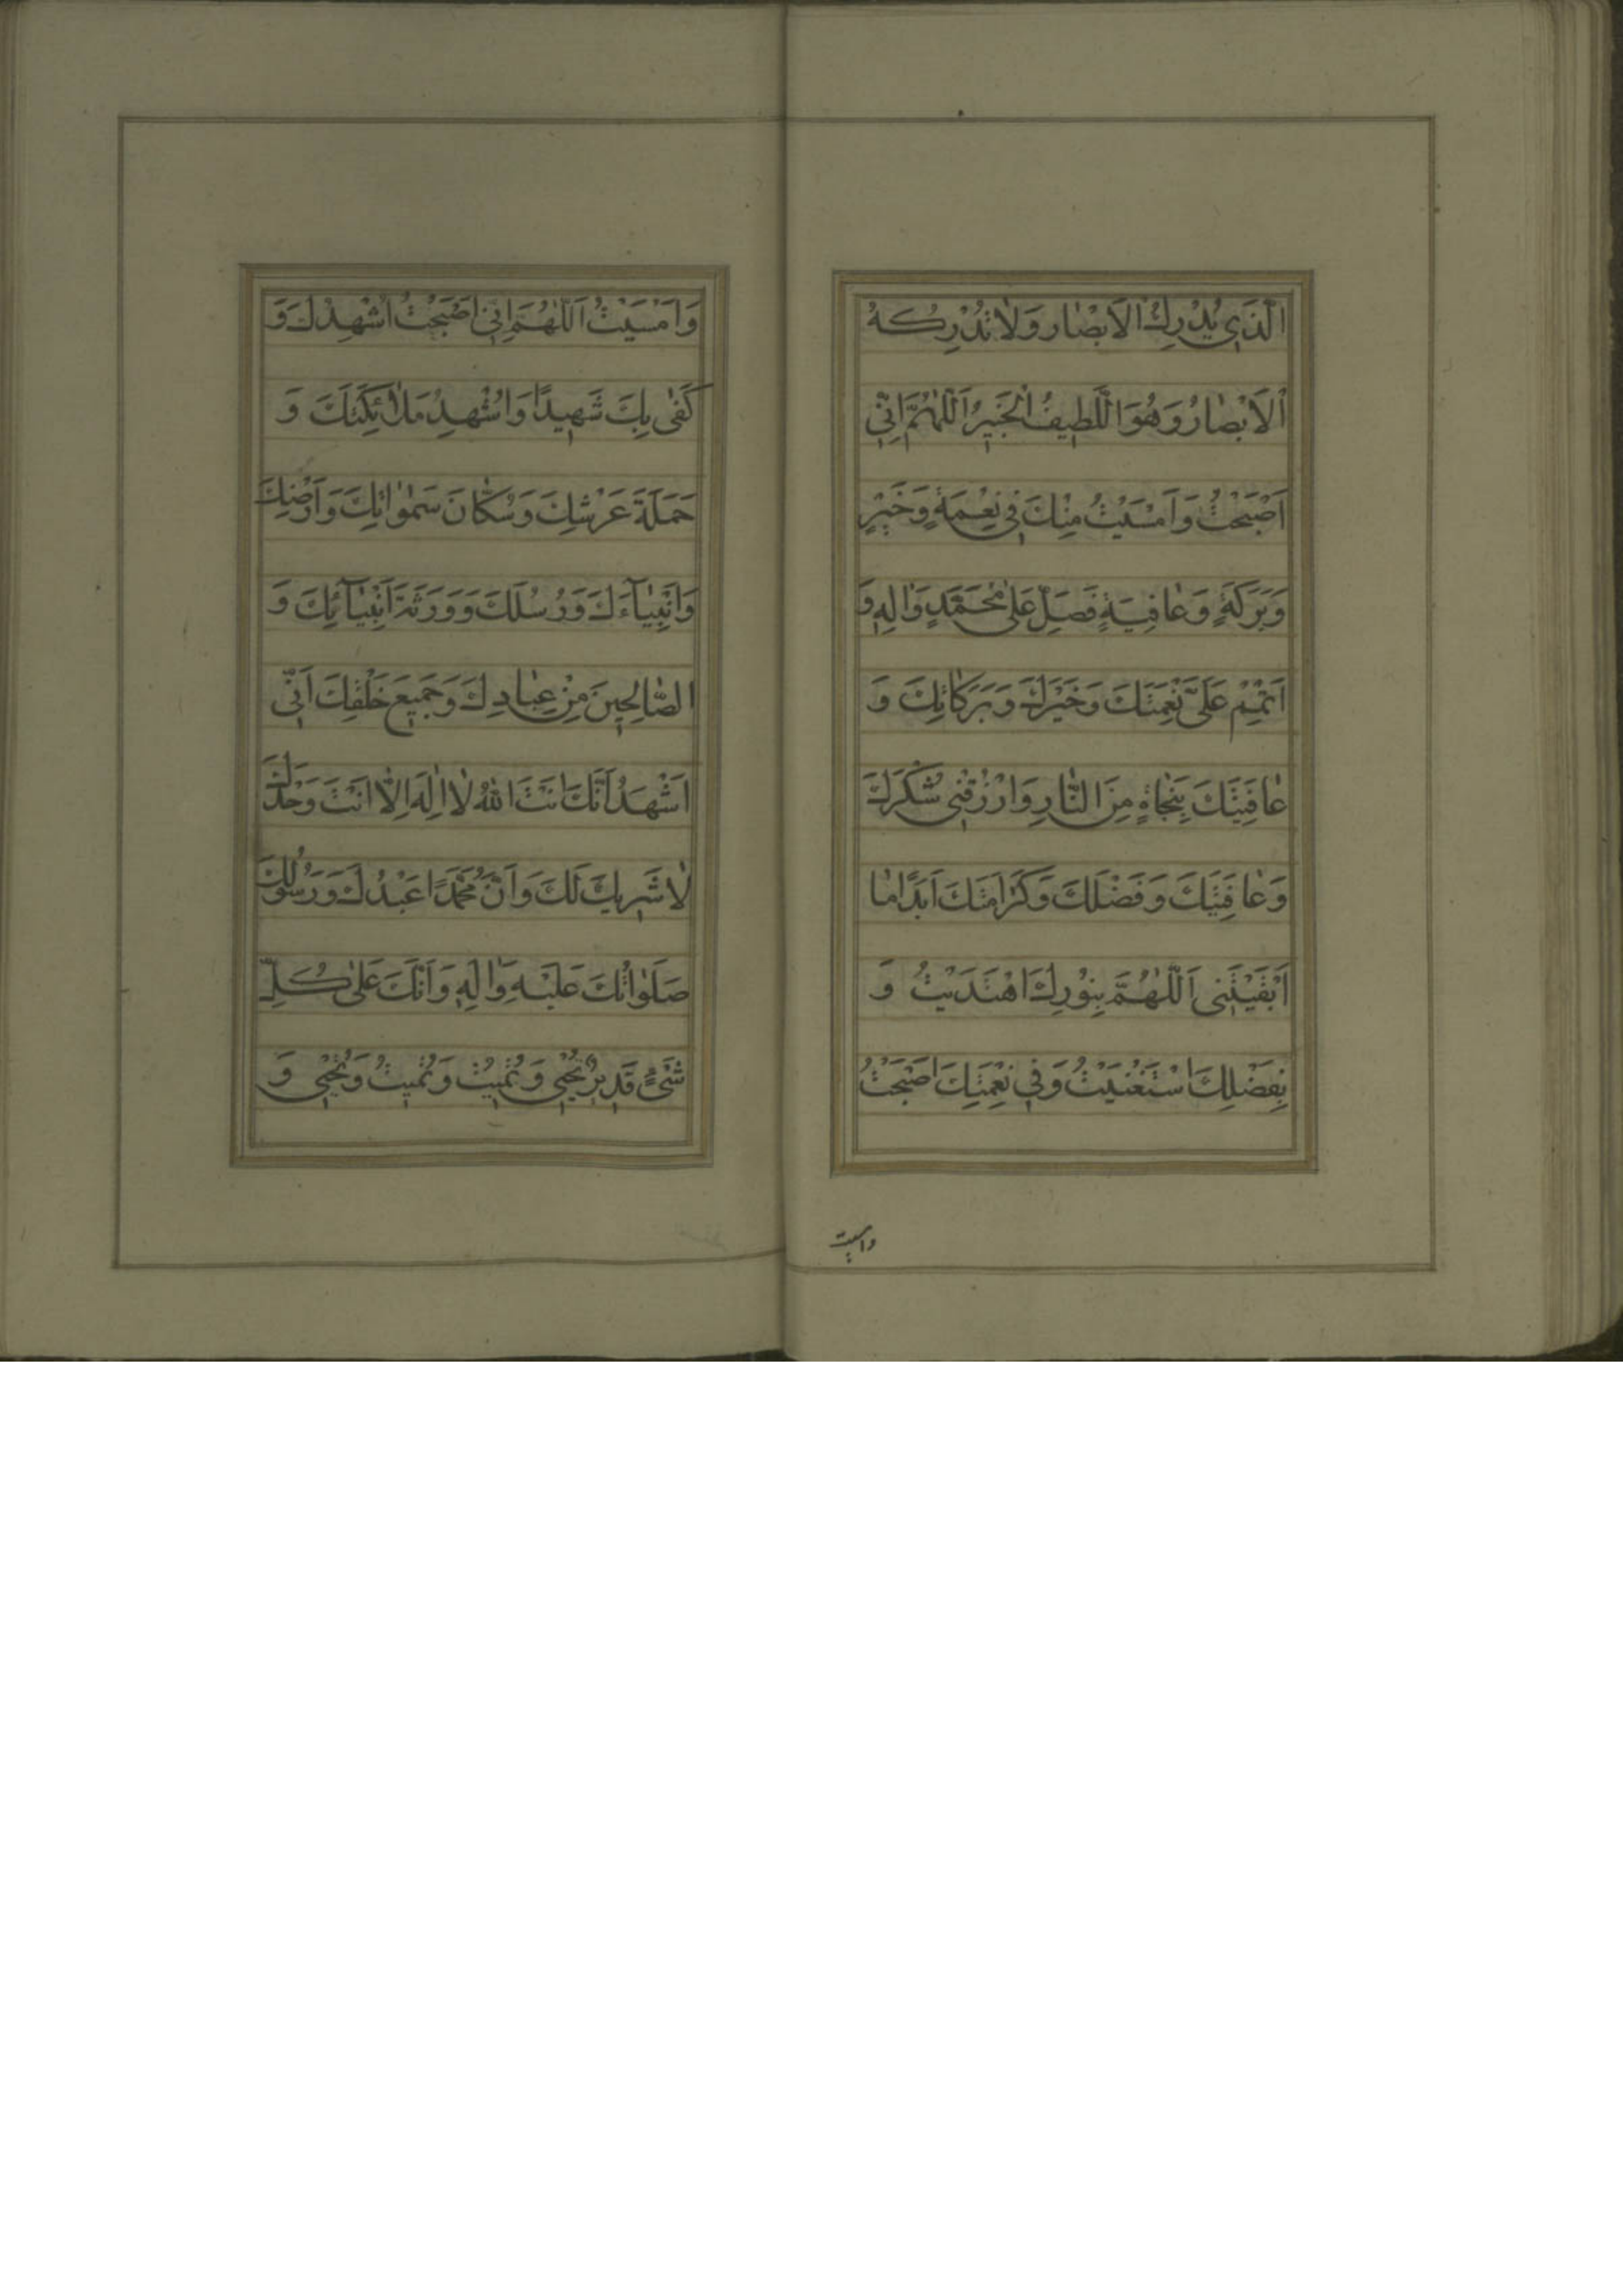 الَّذِي يُدْرِكُ الْاَبْصٰار وَلاٰ تُدْرِكُهُ
الْاَبْصٰارُ وَهُوَ اللَّطيفُ الْخَبيرُ اَللّٰهُمَّ اِنّي
اَصْبَحْتُ وَاَمْسَيْتُ مِنْكَ في نِعْمَةٍ وَخَيْرٍ
وَبَرَكَةٍ وَعٰافِيَةٍ فَصَلِّ عَلىٰ مُحَمَّدٍ وَاٰلِهِ وَ
اَتْمِمْ عَلَيَّ نِعْمَتَكَ وَخَيْرَكَ وَبَرَكٰاتِكَ وَ
عٰافِيَتَكَ بِنَجٰاةٍ مِنَ النّٰارِ وَارْزُقْنى شُكْرَكَ
وَعٰافِيَتَكَ وَفَضْلَكَ وَكَرٰامَتَكَ اَبَدًا مٰا
اَبْقَيْتَنى اَللّٰهُمَّ بِنُورِكَ اهْتَدَيْتُ وَ
بِفَضْلِكَ اسْتَغْنَيْتُ وَفي نِعْمَتِكَ اَصْبَحْتُ
وامسیت
وَاَمْسَيْتُ اَللّٰهُمَّ اِنّي اَصْبَحْتُ اُشْهِدُكَ وَ
كَفىٰ بِكَ شَهيدًا وَاُشْهِدُ مَلاٰئِكَتَكَ وَ
حَمَلَةَ عَرْشِكَ وَسُكّٰانَ سَمٰوٰاتِكَ وَاَرْضِكَ
وَاَنْبِيٰآءَكَ وَرُسُلَكَ وَوَرَثَةَ اَنْبِيٰآئِكَ وَ
الصّٰالِحينَ مِنْ عِبٰادِكَ وَجَميعَ خَلْقِكَ اَنّي
اَشْهَدُ اَنَّكَ اَنْتَ اللهُ لاٰ اِلٰهَ اِلّٰا اَنْتَ وَحْدَكَ
لاٰ شَريكَ لَكَ وَاَنَّ مُحَمَّدًا عَبْدُكَ وَرَسُولُكَ
صَلَوٰاتُكَ عَلَيْهِ وَاٰلِهِ وَاَنَّكَ عَلىٰ كُلِّ
شَيْءٍ قَديرٌ تُحْيي وَتُميتُ وَتُميتُ وَتُحْيي وَ